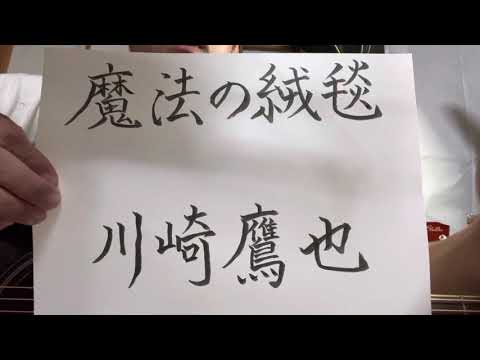 魔法の絨毯
川崎鷹也